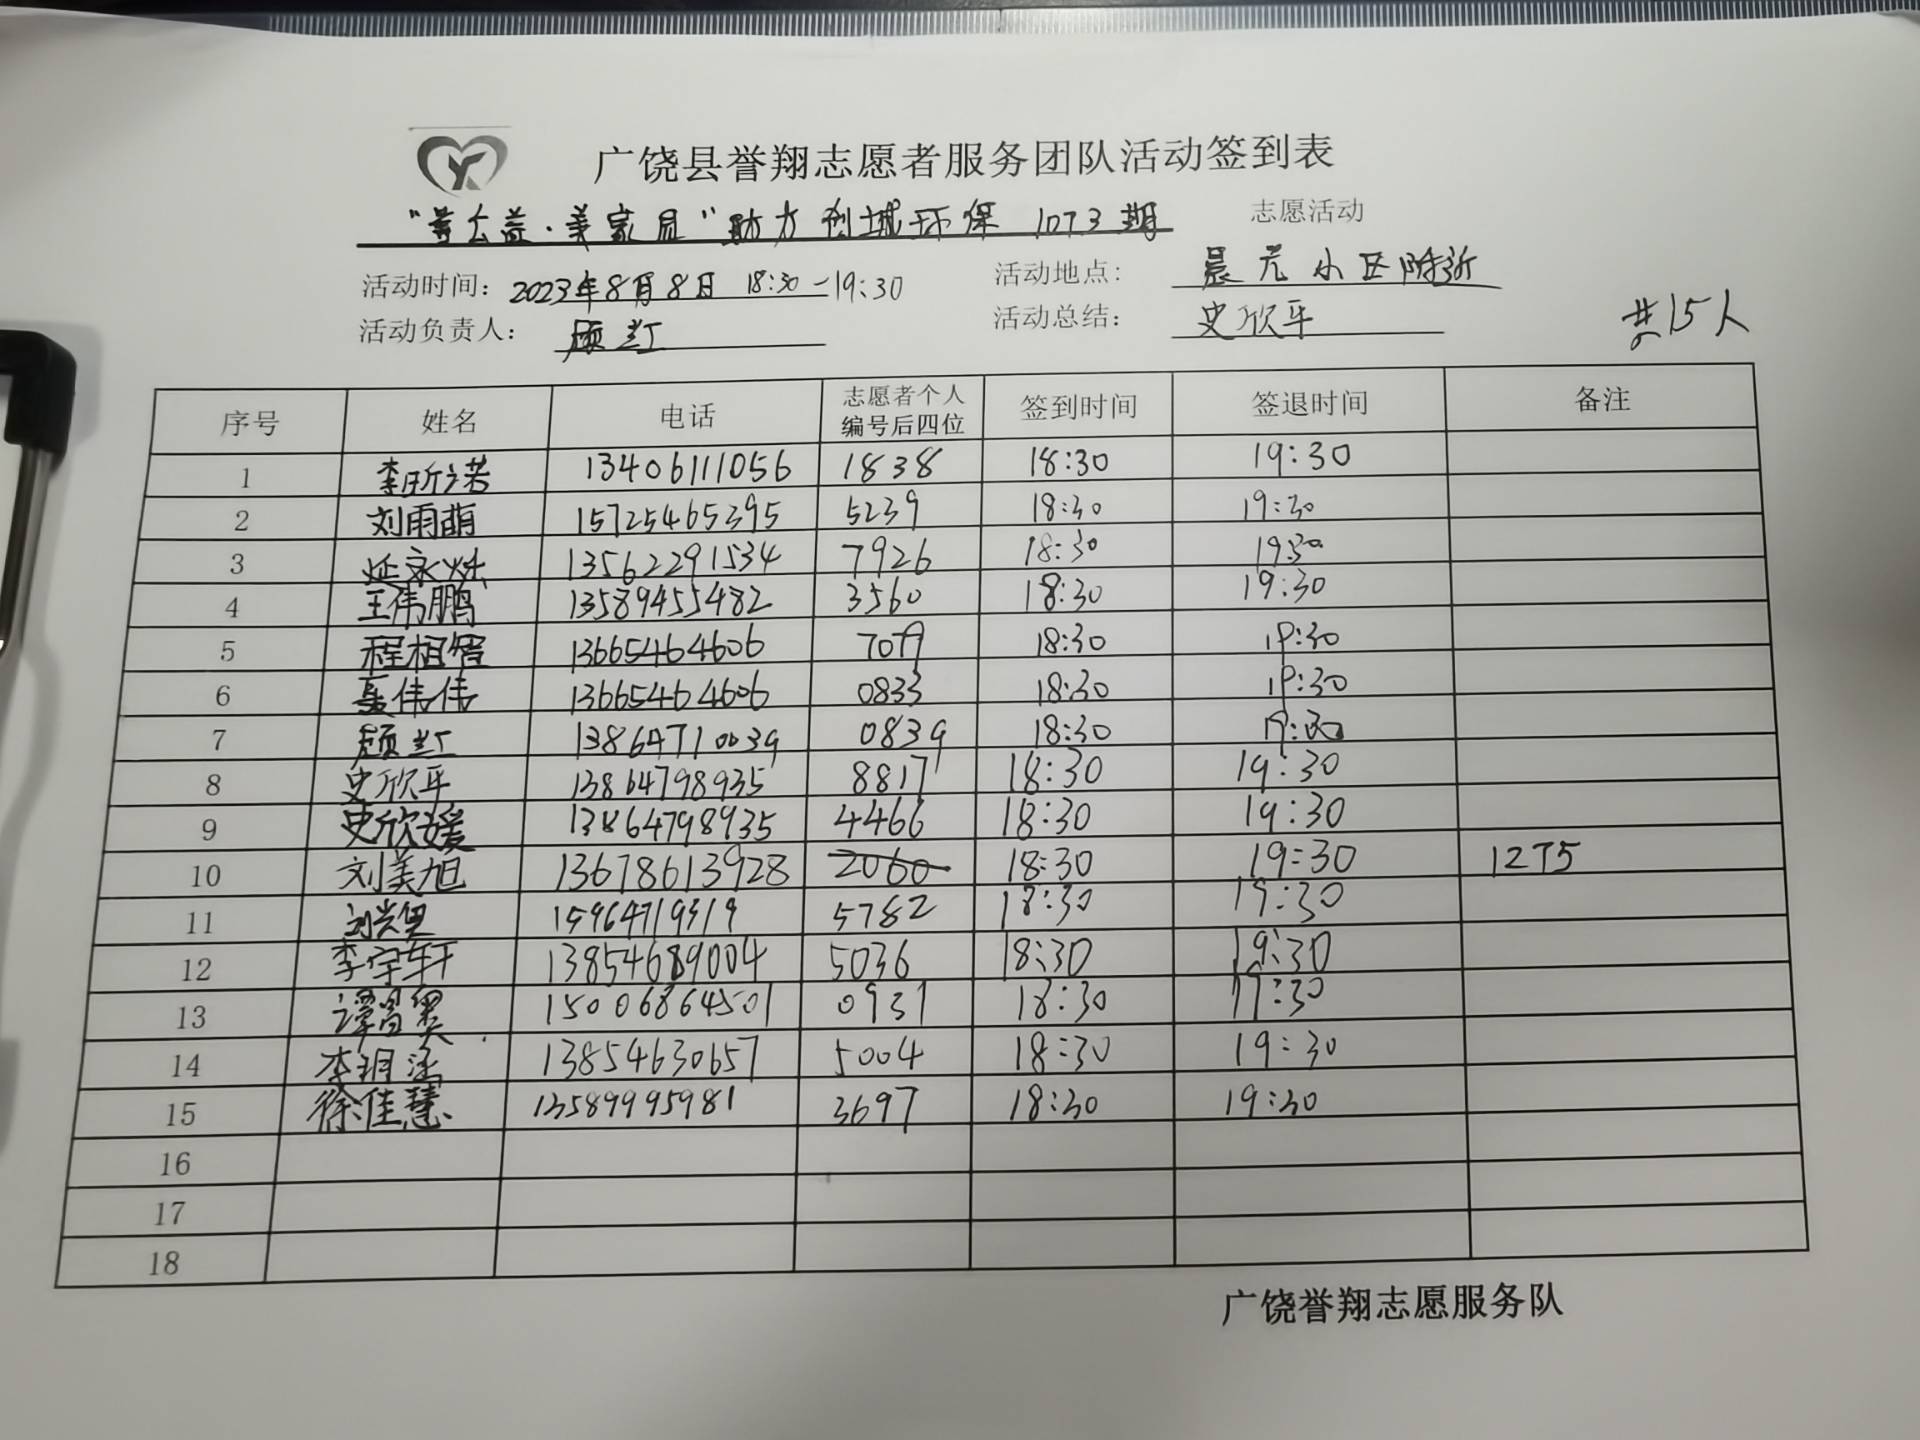 广饶县誉翔志愿者服务团队活动签到表
"善公益·美家园"助力创城环保 1073期 志愿活动
活动时间： 2023年8月8日 18:30-19:30 活动地点： 晨光小区附近
活动负责人： 顾兰红 活动总结： 史欣平
共15人
序号 姓名 电话 志愿者个人编号后四位 签到时间 签退时间 备注
1 李昕诺 13406111056 1838 18:30 19:30
2 刘雨萌 15725465395 5239 18:30 19:30
3 13562291534 7926 18:30 19:30
4 王伟鹏 13589455482 3560 18:30 19:30
5 程相智 13665464606 7079 18:30 19:30
6 聂伟伟 13665464606 0833 18:30 19:30
7 13864710039 0839 18:30 19:30
8 史欣平 13864798935 8817 18:30 19:30
9 史欣媛 13864798935 4466 18:30 19:30
10 刘美旭 13678613928 2060 18:30 19:30 1275
11 15964719319 5782 18:30 19:30
12 李宇轩 13854689004 5036 18:30 19:30
13 15006864501 0931 18:30 19:30
14 李玥涵 13854630657 5004 18:30 19:30
15 徐佳慧 13589995981 3697 18:30 19:30
16
17
18
广饶誉翔志愿服务队